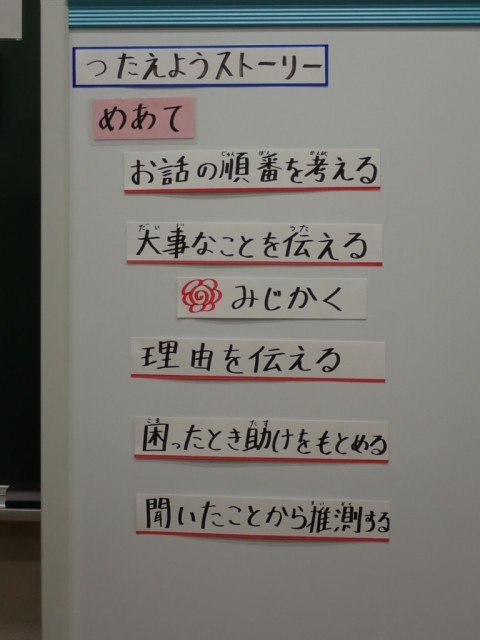 つたえようストーリー
めあて
お話の順番を考える
大事なことを伝える
みじかく
理由を伝える
困ったとき助けをもとめる
聞いたことから推測する